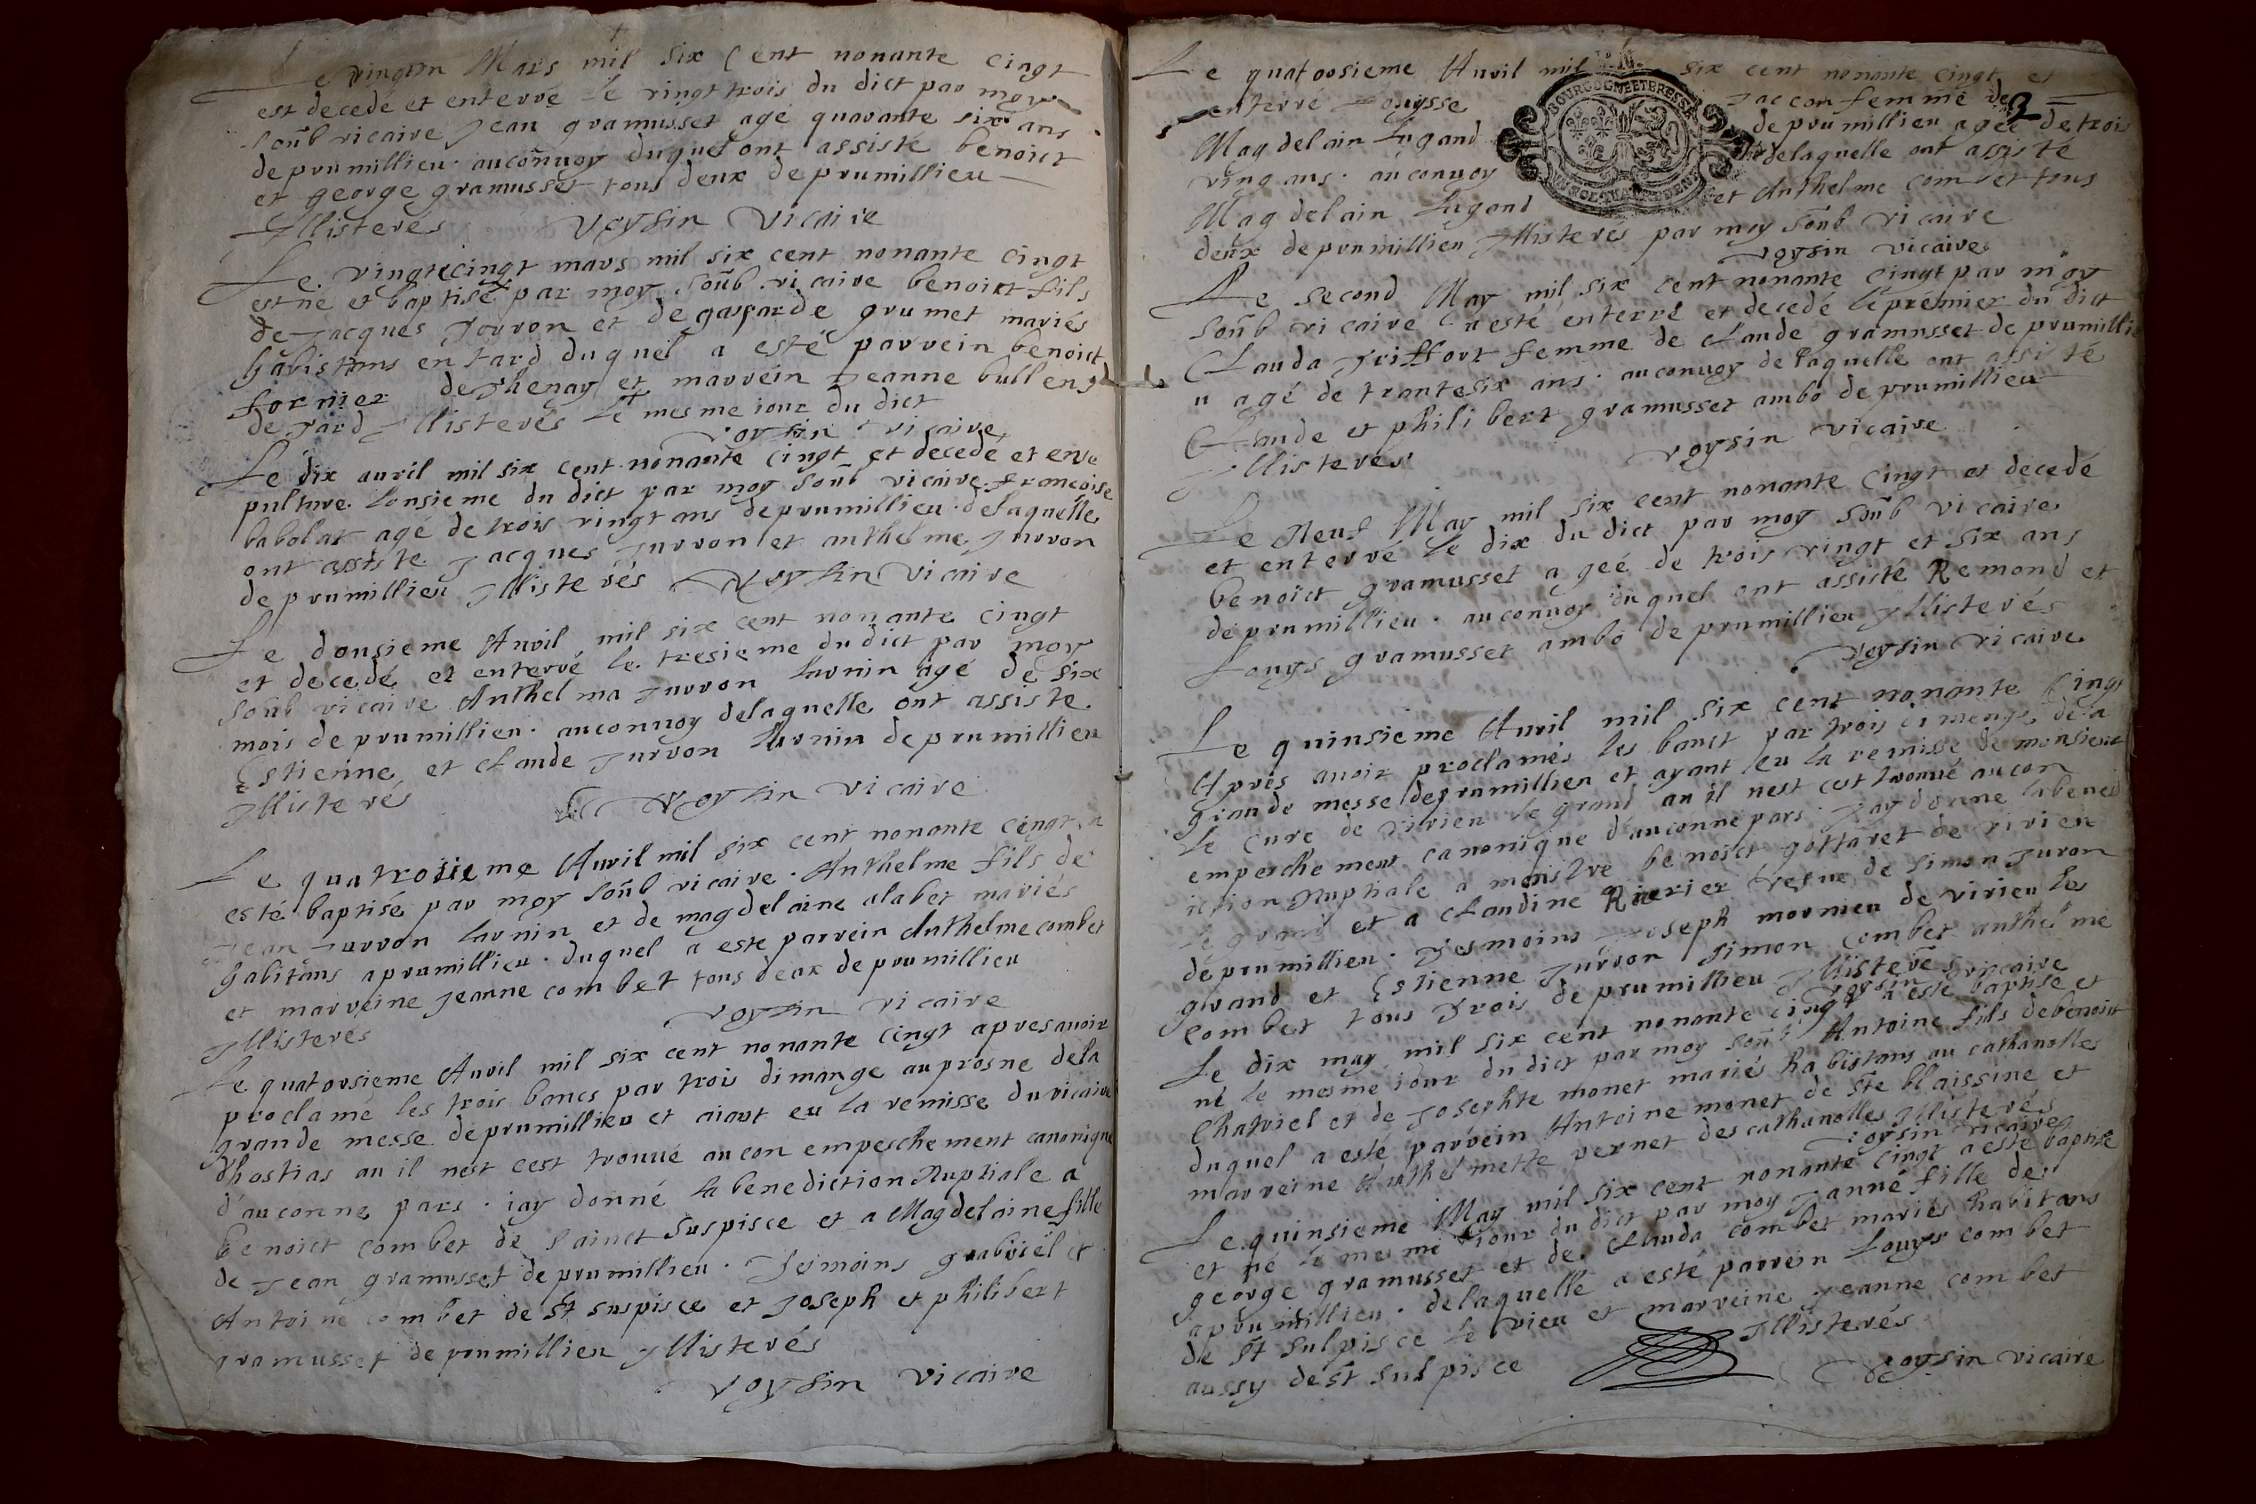 Le vingt un Mars mil six Cent nonante cingt
est decedé et enterré le vingt trois du dict par moy
soub vicaire Jean gramusset agé quarante six ans
de prumillieu. au conuoy duquel ont assisté benoict
et george gramusset tous deux de prumillieu
Illisterés Voysin Vicaire
Le vingtecingt mars mil six cent nonante cingt
est né et baptisé par moy soub vicaire benoict fils
de Jacques Jorron et de gasparde grumet mariés
habistans en tard duquel a esté parrein benoict
fornier de Thenay et marrein Jeanne bullen
de tard Illisterés le mesme iour du dict
Voysin vicaire
Le dix auril mil six cent nonante cingt et decede et ense
pulture lonsieme du dict par moy soub vicaire francoise
babolat agé de trois vingt ans de prumillieu. delaquelle
ont assiste Jacques Jurron et anthelme Jurron
de prumillieu Illisterés Voysin Vicaire
Le dousieme Auril mil six cent nonante cingt
et decedé et enterré le tresieme du dict par moy
soub vicaire Anthelma Jurron lurnin agé de six
mois de prumillieu. au conuoy delaquelle ont assiste
Estienne et Claude Jurron lurnin de prumillieu
Illisterés Voysin vicaire
Le quatrosieme Auril mil six cent nonante cingt a
esté baptisé par moy soub vicaire. Anthelme fils de
Jean Jurron lurnin et de magdelaine alabet mariés
habitans a prumillieu. duquel a este parrein Anthelme combet
et marreine Jeanne combet tous deux de prumillieu
Illisterés Voysin vicaire
Le quatorsieme Auril mil six cent nonante cingt apres auoir
proclamé les trois bancs par trois dimange au prosne dela
grande messe de prumillieu et aiant eu la remisse du vicaire
dhostias au il nest cest trouué aucon empeschement canonique
d'auconne pars. iay donné la benediction Nuptiale a
benoict combet de sainct suspisce et a Magdelaine fille
de Jean gramusset de prumillieu. Tesmoins grabriel et
Antoine combet de St suspisce et Joseph et philibert
gramusset de prumillieu Illisterés
Voysin Vicaire
Le quatoosieme Auril mil six cent nonante cingt et
2
BOURGOGNE ET BRESSE
enterré Louysse Jaccon femme de
Magdelain lugand de prumillieu agée de trois
ving ans. au conuoy delaquelle ont assisté
Magdelain lugand et Anthelme combet tous
deux de prumillieu Illisterés par moy soub vicaire
Voysin vicaire
Le second May mil six cent nonante cingt par moy
soub vicaire a esté enterré et decedé le premier du dict
Clauda Triffort femme de claude gramusset de prumillie
u agé de trantesix ans. au conuoy de laquelle ont assisté
Claude et philibert gramusset ambo de prumillieu
Illisterés Voysin vicaire
Le Neuf May mil six cent nonante cingt et decedé
et enterré le dix du dict par moy soub vicaire
benoict gramusset agéé de trois vingt et six ans
de prumillieu. au conuoy duquel ont assisté Remond et
Louys gramusset ambo de prumillieu Illisterés
Voysin vicaire
Le quinsieme Auril mil six cent nonante cingt
Apres auoir proclamés les banct par trois dimenge dela
grande messe de prumillieu et ayant eu la remisse de monsieur
le Cure de virieu le grand au il nest cest trouué aucon
empeschement canonique d'auconne pars Jay donne la bened
iction Nuptiale a maistre benoict gottaret de virieu
le grand et a Claudine Rierier vefue de simon Juron
de prumillieu. Tesmoins Joseph mornieu de virieu le
grand et Estienne Jurron simon combet anthelme
combet tous trois de prumillieu Illisterés
Voysin vicaire
Le dix may mil six cent nonante cingt a esté baptisé et
né le mesme iour du dict par moy soub Antoine fils de benoict
Chatriel et de Josephte monet mariés habistans au cathanolles
duquel a esté parrein Antoine monet de Ste blaissine et
marreine Anthelmette vernet des cathanolles Illisterés
Voysin vicaire
Le quinsieme May mil six cent nonante cingt a esté baptisé
et né le mesme iour du dict par moy Janné fille de
george gramusset et de Clauda combet mariés habitans
a prumillieu. delaquelle a esté parrein Louys combet
de St sulpisce le vieu et marreine Jeanne combet
aussy de St suspisce Illisterés
Voysin vicaire